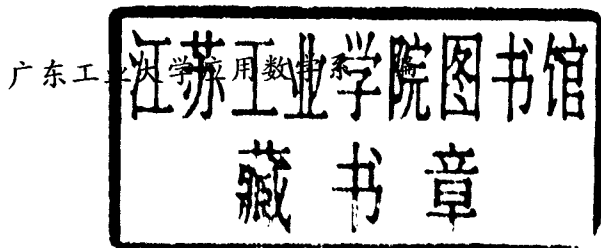 广东工业大学应用数学系 编
江苏工业学院图书馆
藏书章